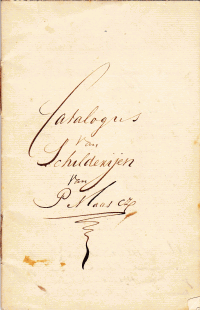 Catalogus
van
Schilderijen
van
P. Maas